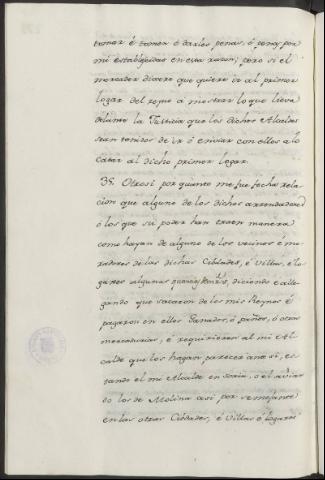 tomar é tomar ó darles penas, ó penas por
mi establezidas en esta razon; pero si el
mercader dixere que quiere ir al primer
logar del reyno a mostrar lo que lieva
delante la Justicia que los dichos Alcaldes
sean tenidos de ir ó enviar con ellos a lo
catar al dicho primer logar.
35. Otrosi por quanto me fue fecha rela
cion que alguno de los dichos arrendadores
ó los que su poder han traen manera
como hayan de alguno de los vecinos é mo
radores de las dichas Cibdades, é Villas, é lo
gares algunas diciendo é alle
gando que sacaron de los mis Reynos é
pagaron en ellos Ganados, ó paños, ó otras
mercadurias, é requirieron al mi Al
calde que los hagan parecer ante si, es
tando el mi Alcalde en Soria, ó el
do los de Molina asi por semejante
en las otras Cibdades, é Villas é logares